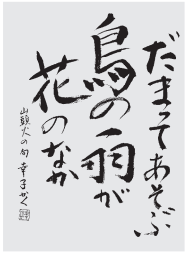 だまってあそぶ
鳥の一羽が
花のなか
山頭火の句 幸子かく